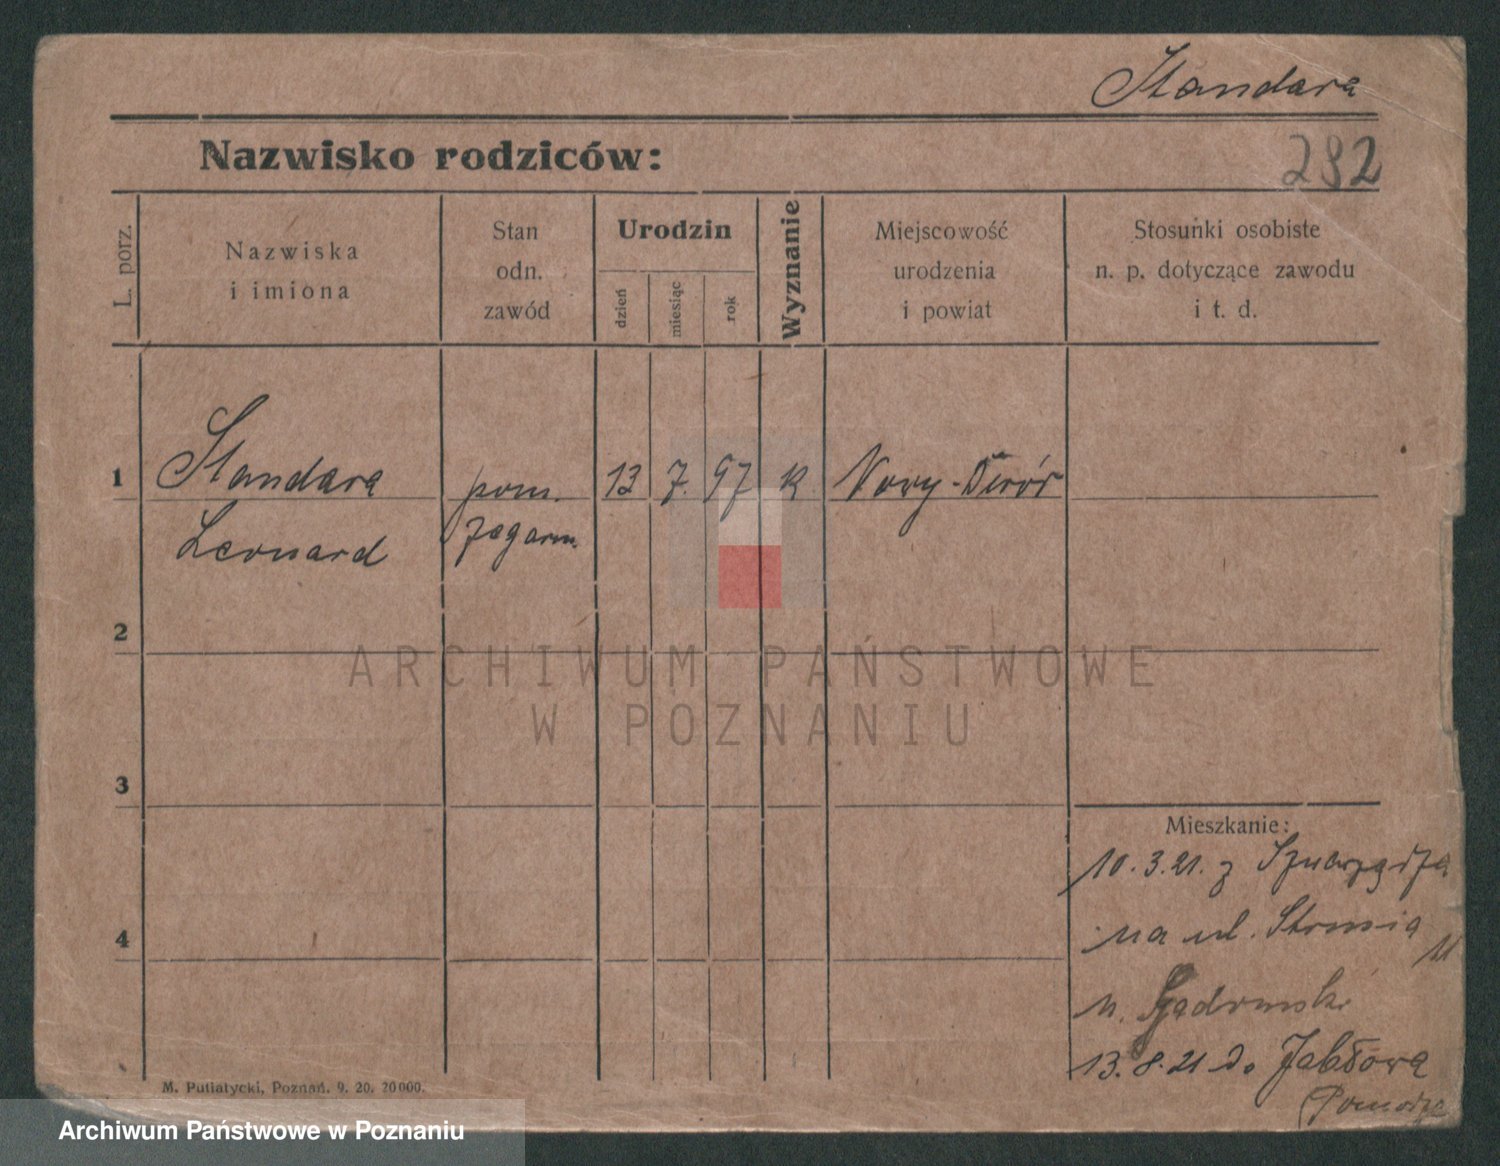 Standara
Nazwisko rodziców:
282
L. porz.
Nazwiska
i imiona
Stan
odn.
zawód
Urodzin
dzień
miesiąc
rok
Wyznanie
Miejscowość
urodzenia
i powiat
Stosunki osobiste
n. p. dotyczące zawodu
i t. d.
1
Standara
Leonard
pom.
zegarm.
13
7.
97
k
Nowy-Dwór
2
ARCHIWUM PAŃSTWOWE
W POZNANIU
3
4
Mieszkanie:
10.3.21. z
na ul. Strusia
11
u.
13.8.21 do Jabłowa
M. Putiatycki, Poznań. 9. 20. 20000.
Archiwum Państwowe w Poznaniu